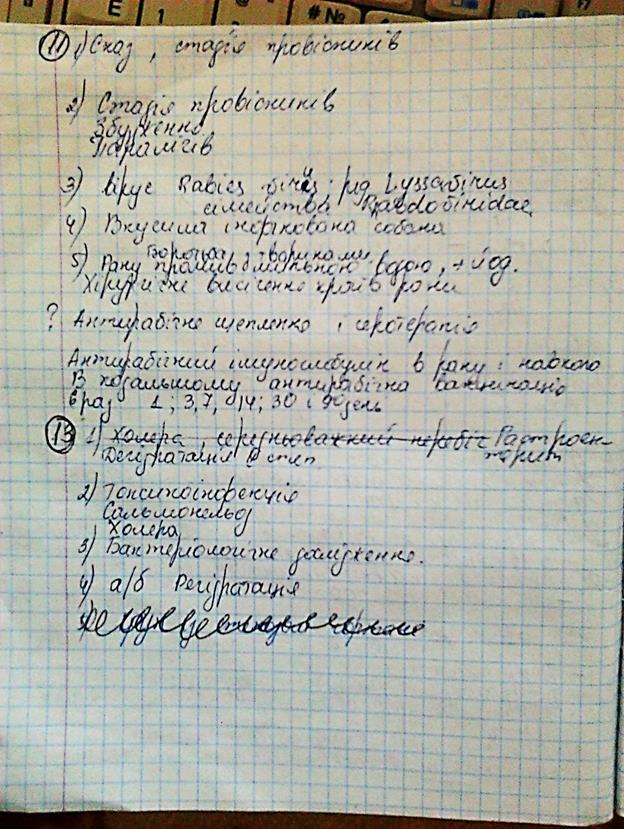 11 1) Сказ, стадія провісників
2) Стадія провісників
Збудження
Паралічів
3) вірус Rabies вірус рід Lyssaвirus
сімейства Rabdoвiridae
4) Вкусила інфікована собака
Боротьба з тваринами
5) Рану промив мильною водою, + йод.
Хірургічне висічення країв рани
? Антирабічне щеплення і серотерапія
Антирабічний імуноглобулін в рану і навколо
В подальшому антирабічна вакцинація
6 раз 1; 3, 7, 14; 30 і 90 день
13 1) Холера, середньоважкий перебіг Гастроен-
Дегідратація ст терит
2) Токсикоінфекція
Сальмонельоз
Холера
3) Бактеріологічне дослідження.
4) а/б Регідратація